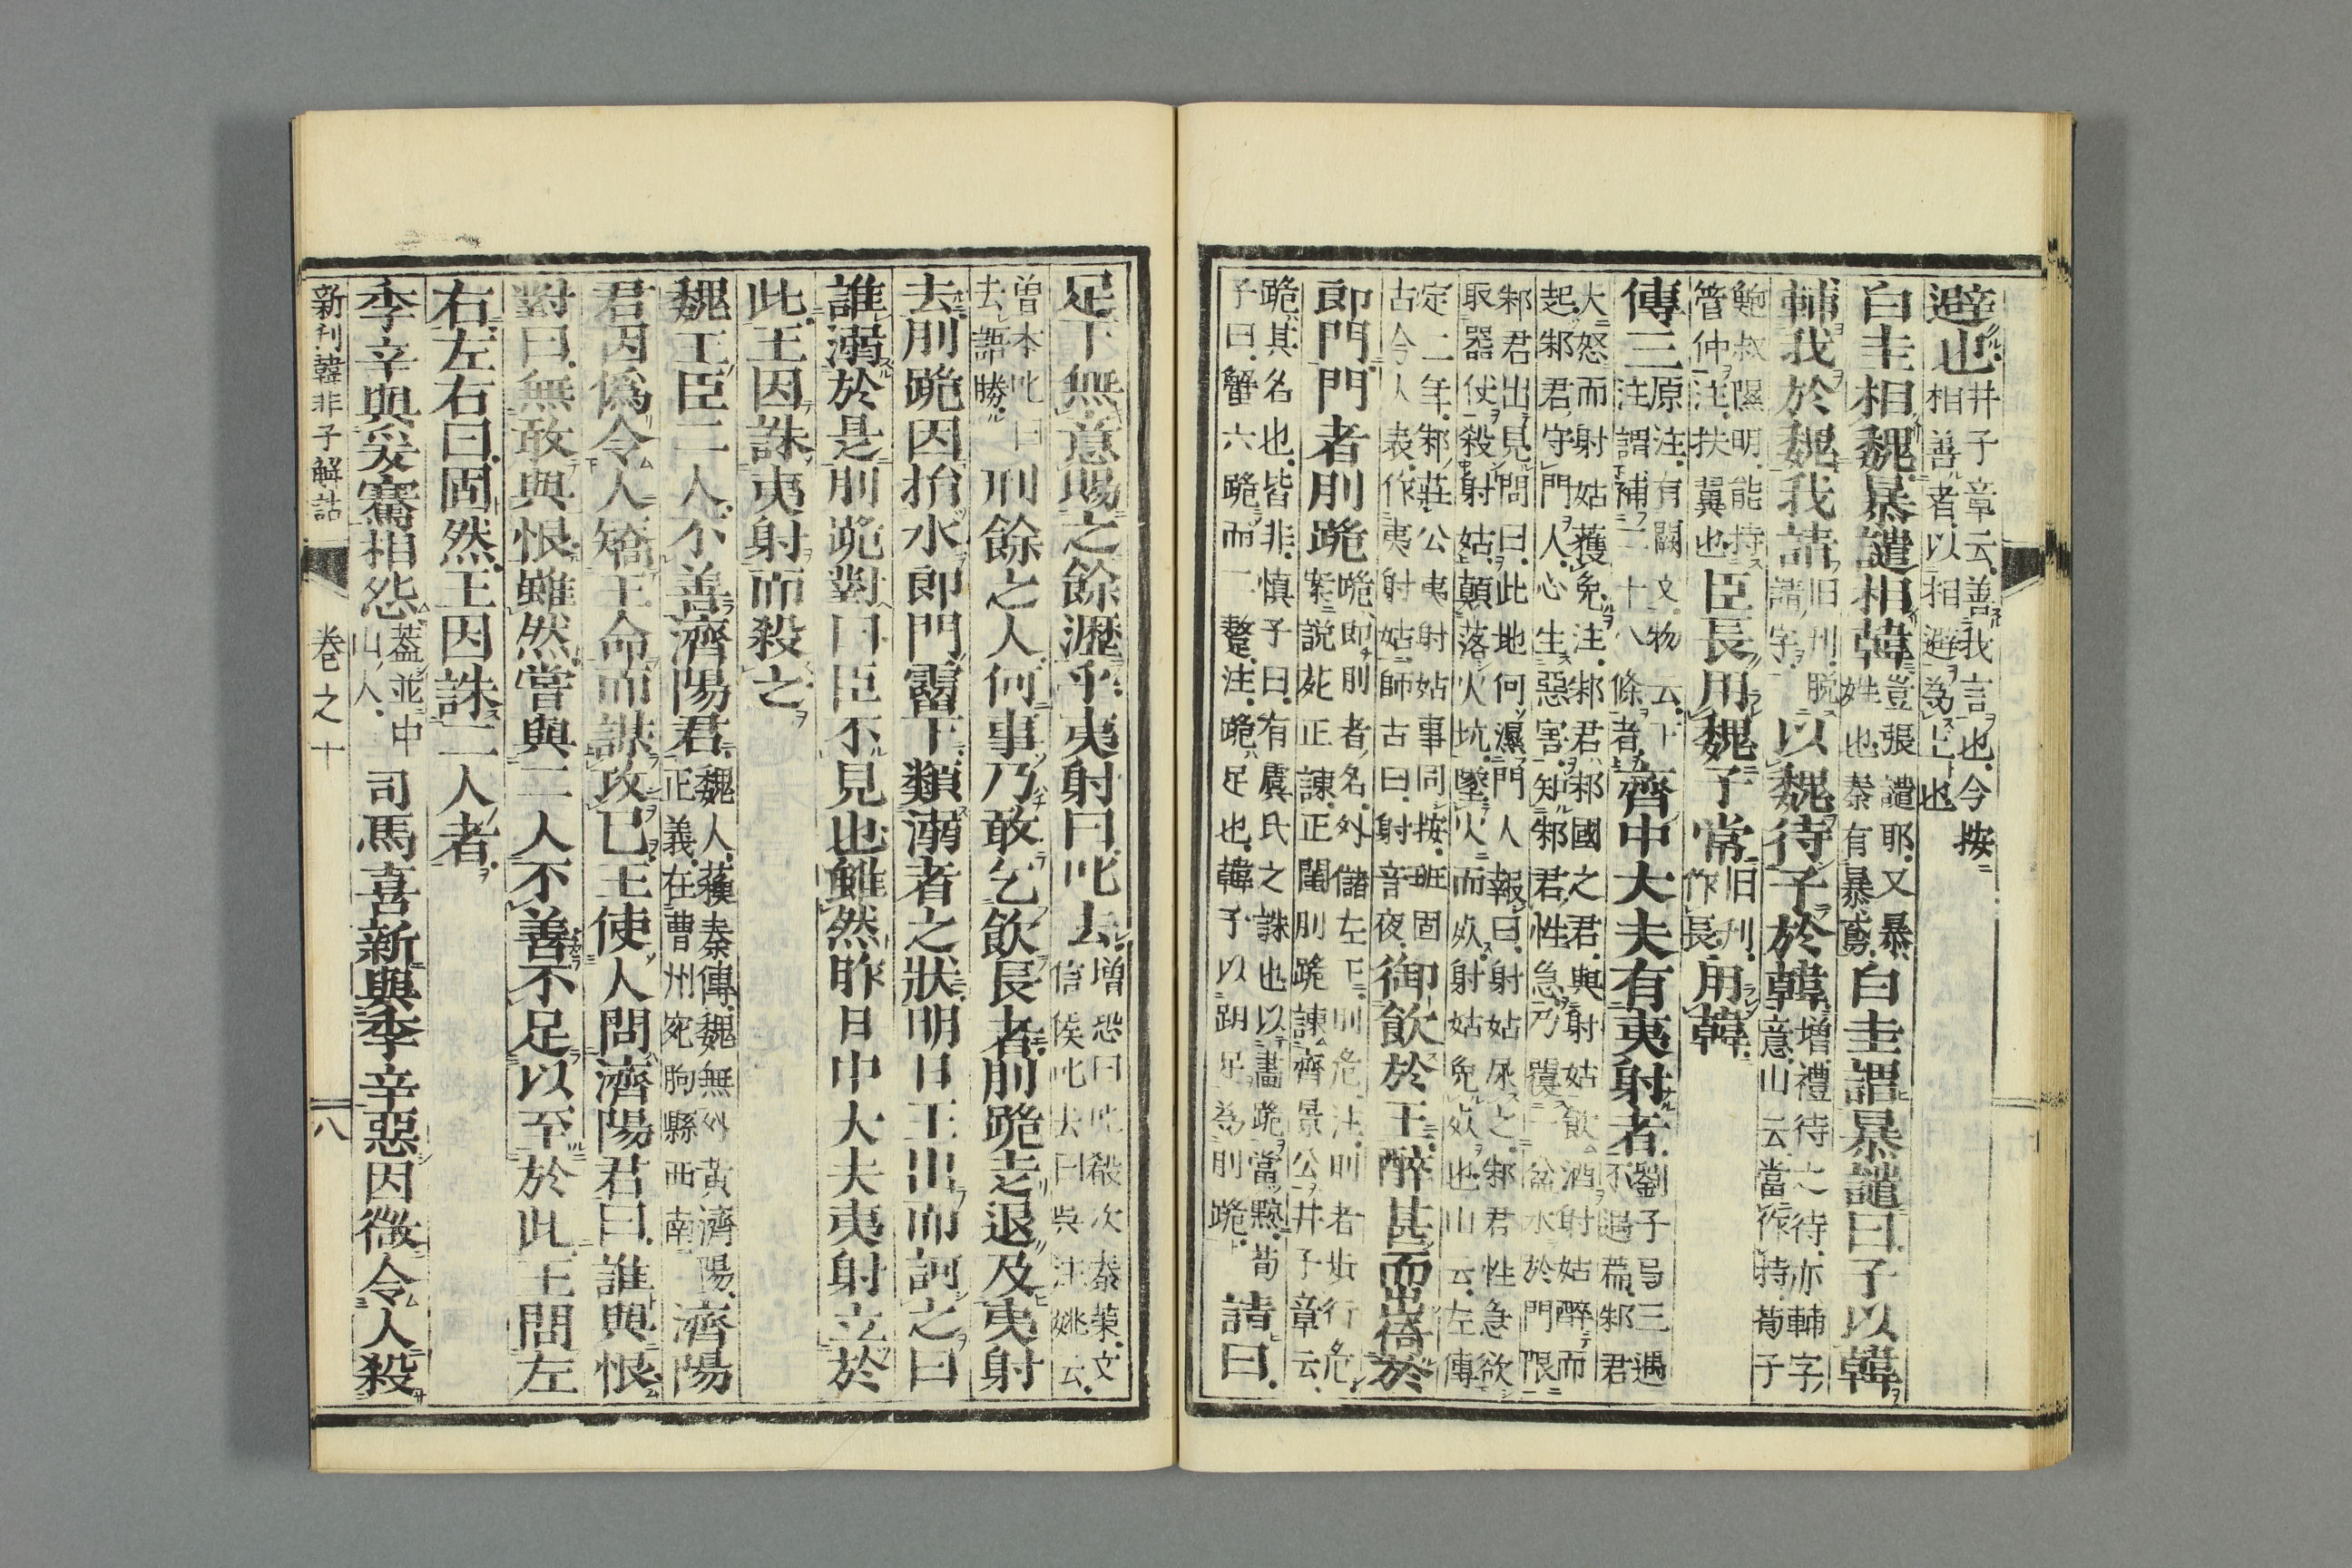 避也井子章云善我言也今按
相善者以相避為上也
白圭相魏暴譴相韓豈張譴耶又暴
姓也秦有暴鳶白圭謂暴譴曰子以韓
輔我於魏我請旧刊脱
請字以魏待子於韓增禮待之待亦輔字
意山云當作持荀子
鮑叔隰明能持
管仲注扶翼也臣長用魏子常旧刊
作長用韓
傳三原注有闕文物云下
注謂補二十八條者齊中大夫有夷射者劉子哥三過
不過篇邾君
大怒而射姑獲免注邾君邾國之君與射姑飲酒射姑醉而
起邾君守門人心生惡害知邾君性急乃覆一盆水於門限
邾君出見問曰此地何濕門人報曰射姑尿之邾君性急欲
取器仗殺射姑顛落火坑墜火而死射姑免死也山云左傳
定二年邾莊公夷射姑事同按班固
古今人表作夷射姑師古曰射音夜御飲於王醉甚而出倚於
郎門門者刖跪跪即刖者名外儲左下刖危注刖者步行危
案説苑正諫正閨刖跪諫齊景公井子章云
跪其名也皆非慎子曰有虞氏之誅也以畫跪當黥荀
子曰蟹六跪而二螯注跪足也韓子以刖足為刖跪請曰
足下無意賜之餘瀝乎夷射曰叱去增恐曰叱殺次秦策文
信侯叱去曰呉注姚云
曽本叱曰
去語勝刑餘之人何事乃敢乞飲長者刖跪走退及夷射
去刖跪因捐水郎門霤下類溺者之狀明日王出而訶之曰
誰溺於是刖跪對曰臣不見也雖然昨日中大夫夷射立於
此王因誅夷射而殺之
魏王臣二人不善濟陽君魏人蘇秦傳魏無外黃濟陽
正義在曹州宛朐縣西南濟陽
君因僞令人矯王命而謀攻己王使人問濟陽君曰誰與恨
對曰無敢與恨雖然嘗與二人不善不足以至於此王問左
右左右曰固然王因誅二人者
季辛與爰騫相怨葢並中
山人司馬喜新與季辛惡因微令人殺
新刊韓非子解詁 卷之十 八